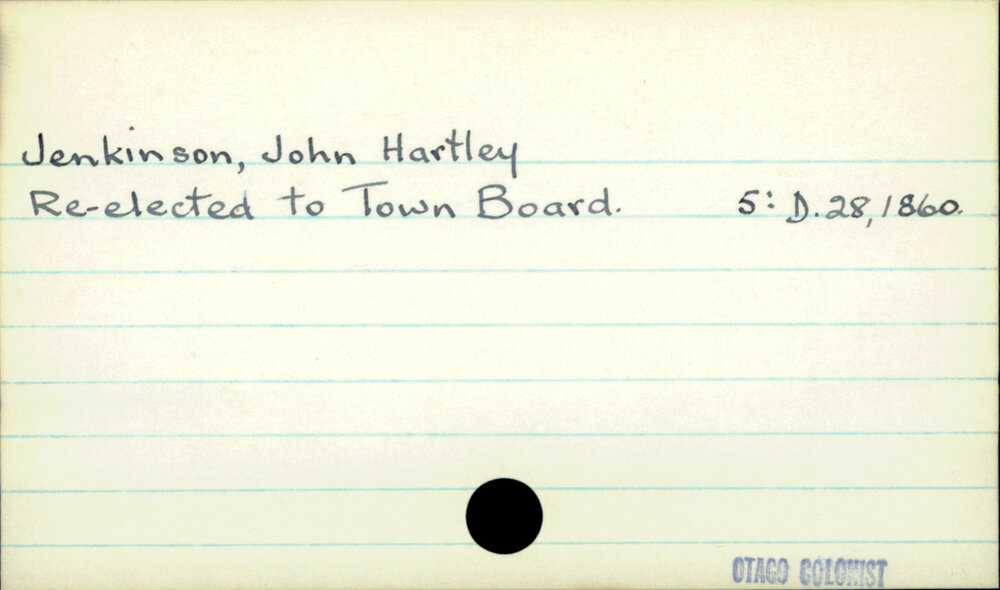 Jenkinson, John Hartley
Re-elected to Town Board. 5: D.28,1860.
OTAGO COLONIST